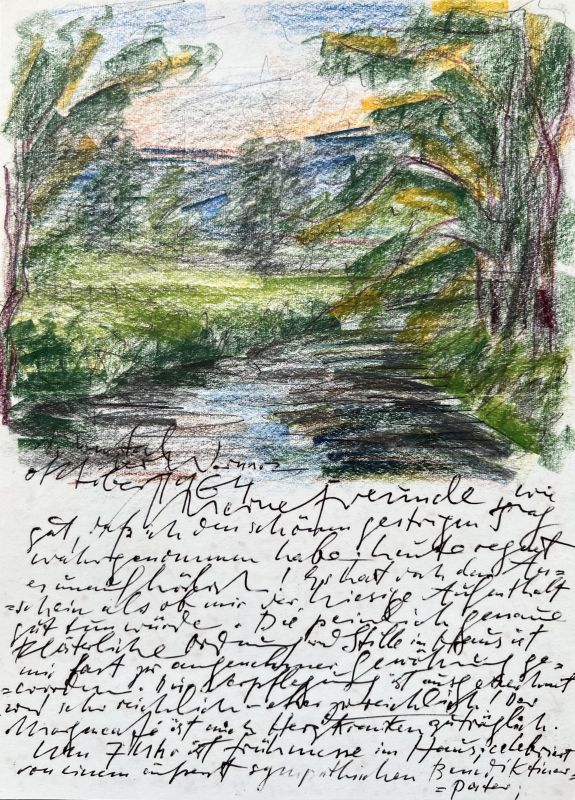 bei Worms
Oktober 1964
Meine Freunde, wie
gut, daß ich den schönen gestrigen Tag
wahrgenommen habe: heute regnet
es unaufhörlich! Es hat doch den An=
=schein als ob mir der hiesige Aufenthalt
gut tun würde. Die peinlich genaue
klösterliche Ordnung und Stille im Haus ist
mir fast zur angenehmen Gewöhnung ge=
=worden. Die Verpflegung ist ausgezeichnet
und sehr reichlich - eher zu reichlich! Der
Morgencafé ist auch Herzkranken zuträglich.
Um 7 Uhr ist Frühmesse im Haus, celebriert
von einem äußerst sympathischen Benediktiner=
=pater,